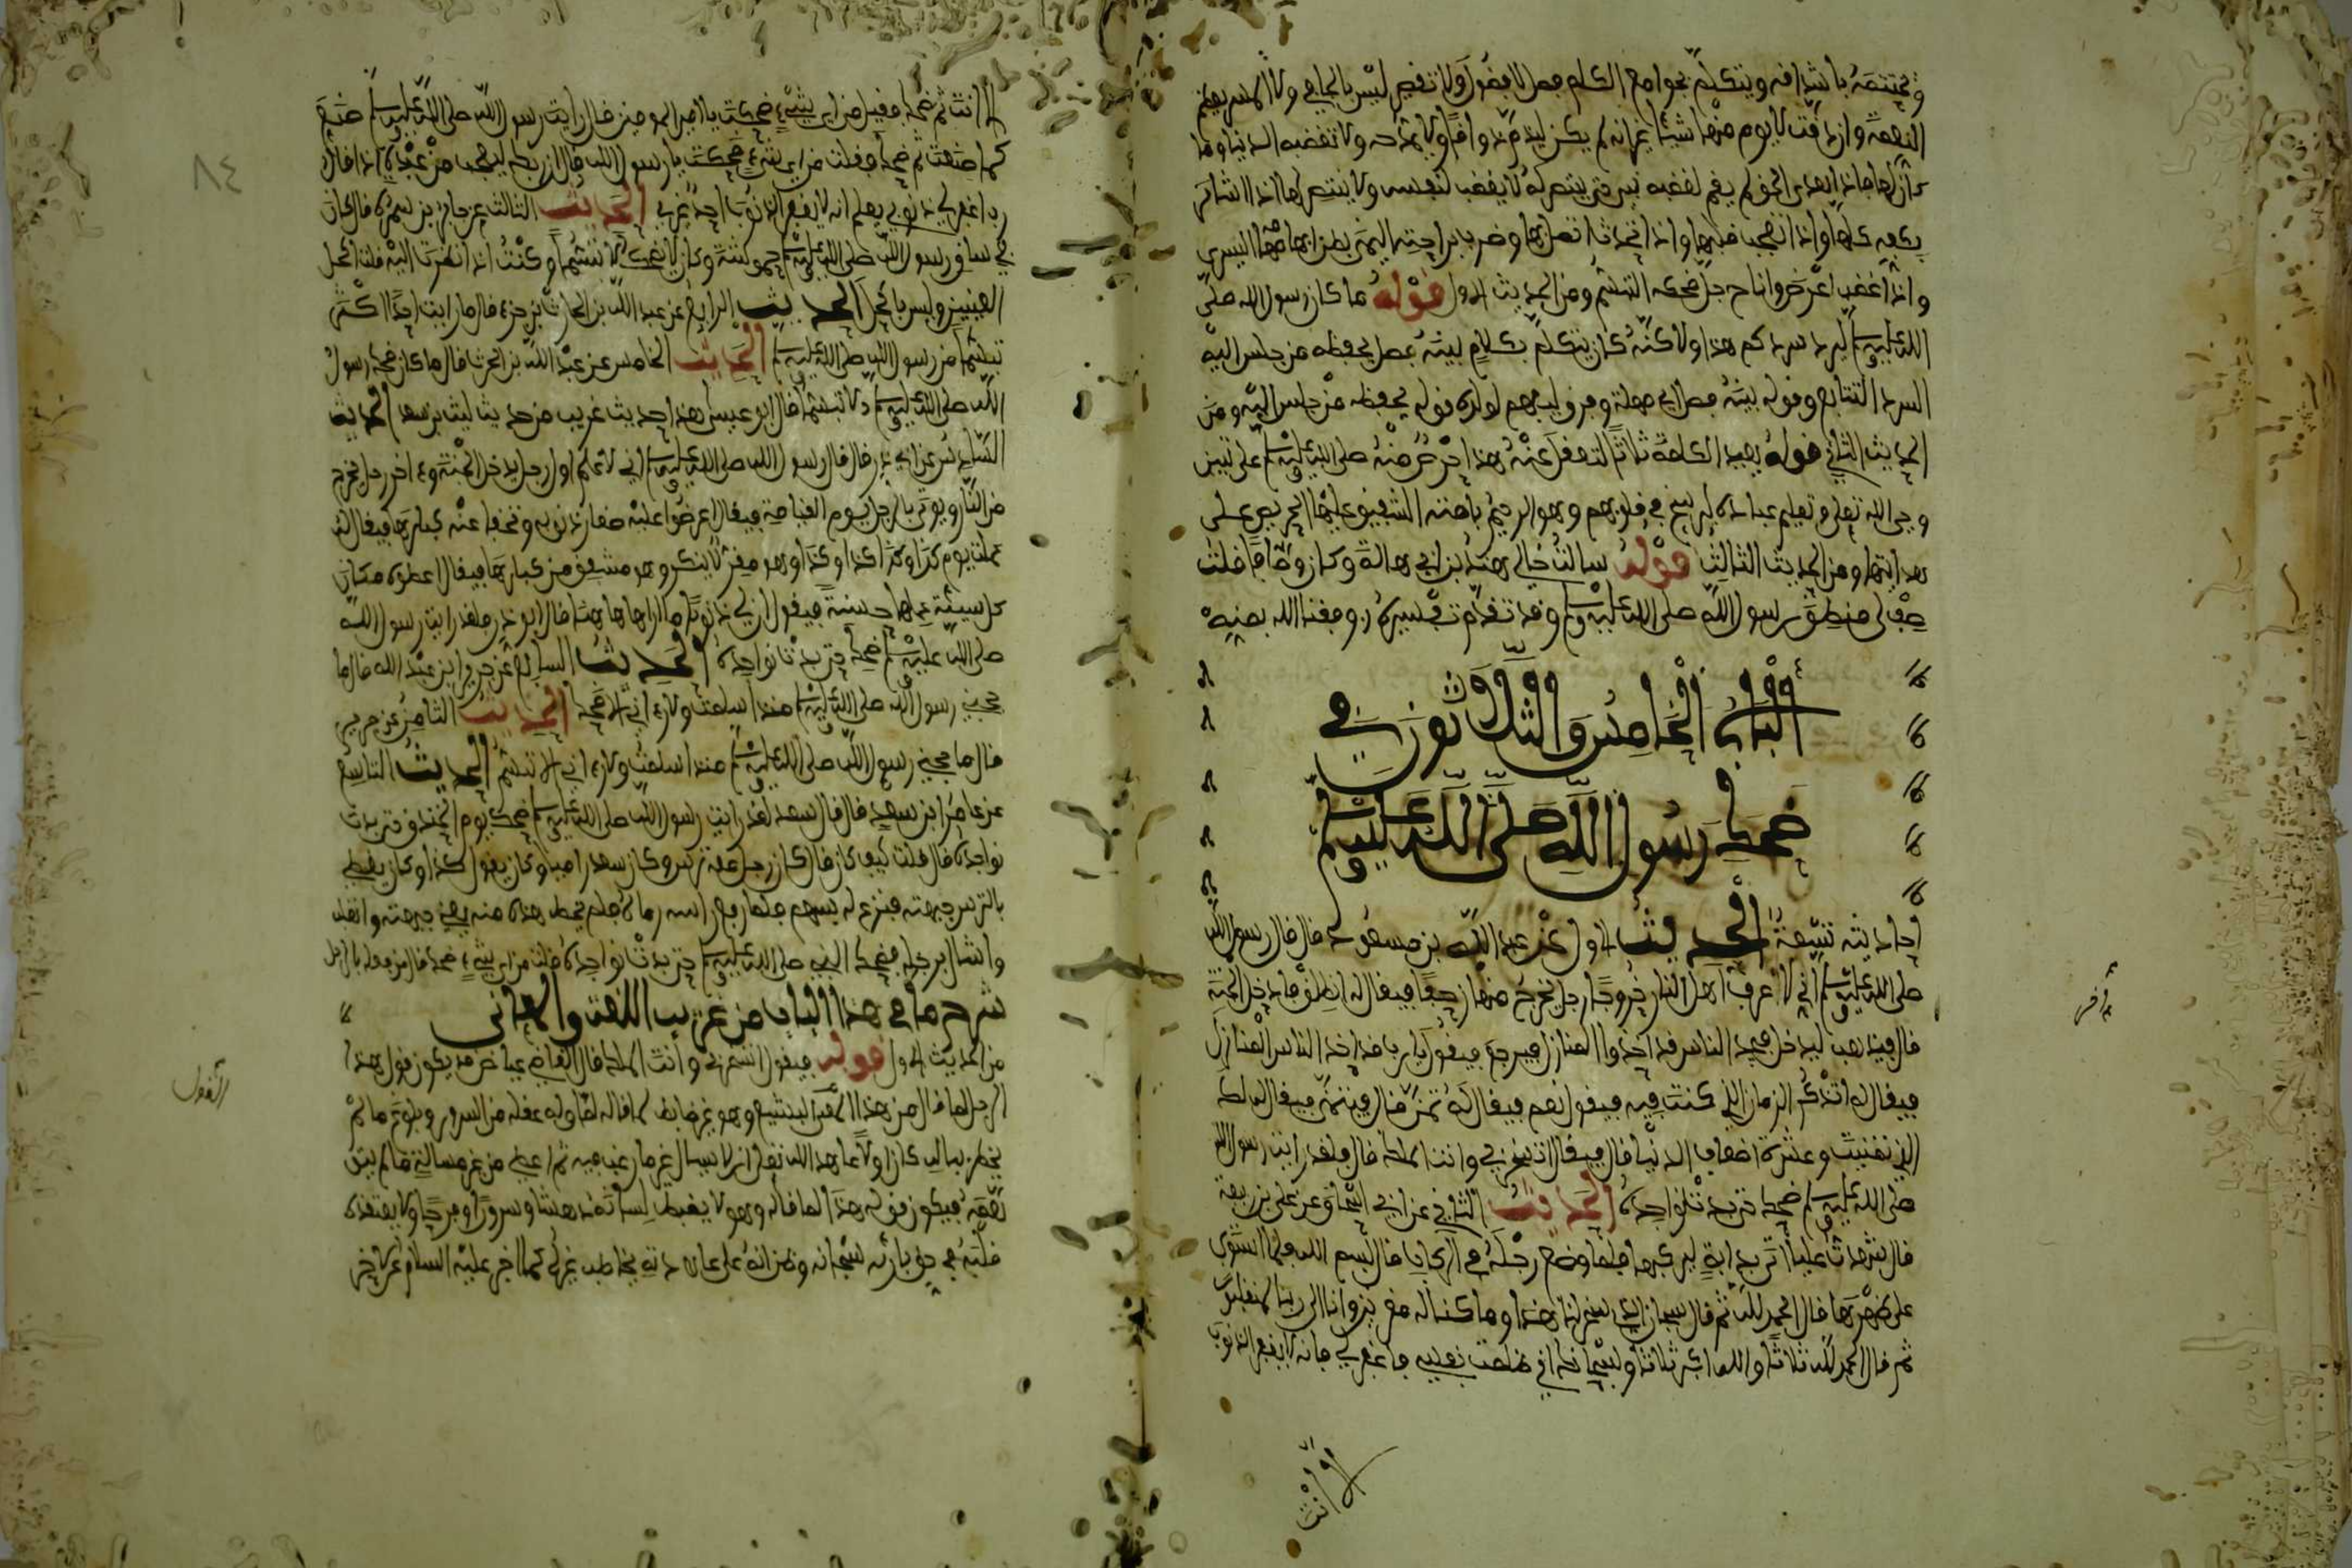 ويختتمه باشداقه ويتكلم بجوامع الكلم فصل لا فضول ولا تقصير ليس بالجافي ولا المهين يعظم
النعمة وان دقت لا يذم منها شيئا غير انه لم يكن يذم ذواقا ولا يمدحه ولا تغضبه الدنيا وما
كان لها فاذا تعدي الحق لم يقم لغضبه شيء حتى ينتصر له لا يغضب لنفسه ولا ينتصر لها اذا اشار
بكفه كلها واذا تعجب قلبها واذا تحدث اتصل بها وضرب براحته اليمنى بطن ابهامه اليسرى
واذا غضب اعرض واشاح جل ضحكه التبسم ومن الحديث الاول قوله ما كان رسول الله صلى
الله عليه وسلم يسرد سردكم هذا ولاكنه كان يتكلم بكلام بينه فصل يحفظه من جلس اليه
السرد التتابع وقوله بينه فصل اي مهلة وفرق ليفهم لولاه قوله يحفظه من جلس اليه ومن
الحديث الثاني قوله يعيد الكلمة ثلاثا لتعقل عنه هذا حرص منه صلى الله عليه وسلم على تبيين
وحي الله تعلى وتعليم عباده ليرسخ في قلوبهم وهو الرحيم بامته الشفيق عليها الحريص على
هدايتها ومن الحديث الثالث قوله سالت خالي هند بن ابي هالة وكان وصافا فقلت
صف لي منطق رسول الله صلى الله عليه وسلم وقد تقدم تفسيره وفقنا الله بمنه
الباب الخامس والثلاثون في
ضحك رسول الله صلى الله عليه وسلم
احاديثه تسعة الحديث الاول عن عبد الله بن مسعود قال قال رسول الله
صلى الله عليه وسلم اني لا عرف اخر اهل النار خروجا رجل يخرج منها زحفا فيقال له انطلق فادخل الجنة
قال فيذهب ليدخل فيجد الناس قد اخذوا المنازل فيرجع فيقول يا رب قد اخذ الناس المنازل
فيقال له اتذكر الزمان الذي كنت فيه فيقول نعم فيقال له تمن قال فيتمنى فيقال له لك
الذي تمنيت وعشرة اضعاف الدنيا قال فيقول اتسخر بي وانت الملك قال فلقد رايت رسول الله
صلى الله عليه وسلم ضحك حتى بدت نواجذه الحديث الثاني عن ابي اسحاق عن علي بن ربيعة
قال شهدت عليا اتي بدابة ليركبها فلما وضع رجله في الركاب قال بسم الله فلما استوى
على ظهرها قال الحمد لله ثم قال سبحان الذي سخر لنا هذا وما كنا له مقرنين وانا الى ربنا لمنقلبون
ثم قال الحمد لله ثلاثا والله اكبر ثلاثا وسبحانك اني ظلمت نفسي فاغفر لي فانه لا يغفر الذنوب
الا انت
اخر
٨٤
الا انت ثم ضحك فقيل من اي شيء ضحكت يا امير المومنين قال رايت رسول الله صلى الله عليه وسلم صنع
كما صنعت ثم ضحك فقلت من اي شيء ضحكت يا رسول الله قال ان ربك ليعجب من عبده اذا قال
رب اغفر لي ذنوبي يعلم انه لا يغفر الذنوب احد غيري الحديث الثالث عن جابر بن سمرة قال كان
في ساقي رسول الله صلى الله عليه وسلم حموشة وكان لا يضحك الا تبسما وكنت اذا نظرت اليه قلت اكحل
العينين وليس باكحل الحديث الرابع عن عبد الله بن الحارث بن جزء قال ما رايت احدا اكثر
تبسما من رسول الله صلى الله عليه وسلم الحديث الخامس عن عبد الله بن الحرث قال ما كان ضحك رسول
الله صلى الله عليه وسلم الا تبسما قال ابو عيسى هذا حديث غريب من حديث ليث بن سعد الحديث
السادس عن ابي ذر قال قال رسول الله صلى الله عليه وسلم اني لا علم اول رجل يدخل الجنة واخر رجل يخرج
من النار ويوتى بالرجل يوم القيامة فيقال اعرضوا عليه صغار ذنوبه وتخفا عنه كبارها فيقال له
عملت يوم كذا وكذا كذا وكذا وهو مقر لا ينكر وهو مشفق من كبارها فيقال اعطوه مكان
كل سيئة عملها حسنة فيقول ان لي ذنوبا ما اراها هاهنا قال ابو ذر فلقد رايت رسول الله
صلى الله عليه وسلم ضحك حتى بدت نواجذه الحديث السابع عن جرير ابن عبد الله قال ما
حجبني رسول الله صلى الله عليه وسلم منذ اسلمت ولا رءاني الا ضحك الحديث الثامن عن جرير
قال ما حجبني رسول الله صلى الله عليه وسلم منذ اسلمت ولا رءاني الا تبسم الحديث التاسع
عن عامر ابن سعد قال قال سعد لقد رايت رسول الله صلى الله عليه وسلم ضحك يوم الخندق حتى بدت
نواجذه قال قلت كيف كان قال كان رجل معه ترس وكان سعد راميا وكان يقول كذا وكذا يغطي
بالترس جبهته فنزع له بسهم فلما رفع راسه رماه فلم يخط هذه منه يعني جبهته وانقلب
واشال برجله فضحك النبي صلى الله عليه وسلم حتى بدت نواجذه قلت من اي شيء ضحك قال من فعله بالرجل
شرح ما في هذا الباب من غريب اللغة والمعاني
من الحديث الاول قوله فيقول اتسخر بي وانت الملك قال القاضي عياض قد يكون قول هذا
الرجل لما قال من هذا وهو غير ضابط لما قاله لما وله عقله من السرور وبلوغ ما لم
يخطر بباله كان اولا عاهد الله تعلى ان لا يسال غير ما رغب فيه ثم اعطي من غير مسالة ما لم يبق
فيكون قوله هذا لما قاله وهو لا يضبط لسانه دهشا وسرورا وفرحا ولا يعتقده
قلبه في حق بارئه سبحانه وظن انه على عادته يخاطب غيره كما اخبر عليه السلام عن الاخر
القول